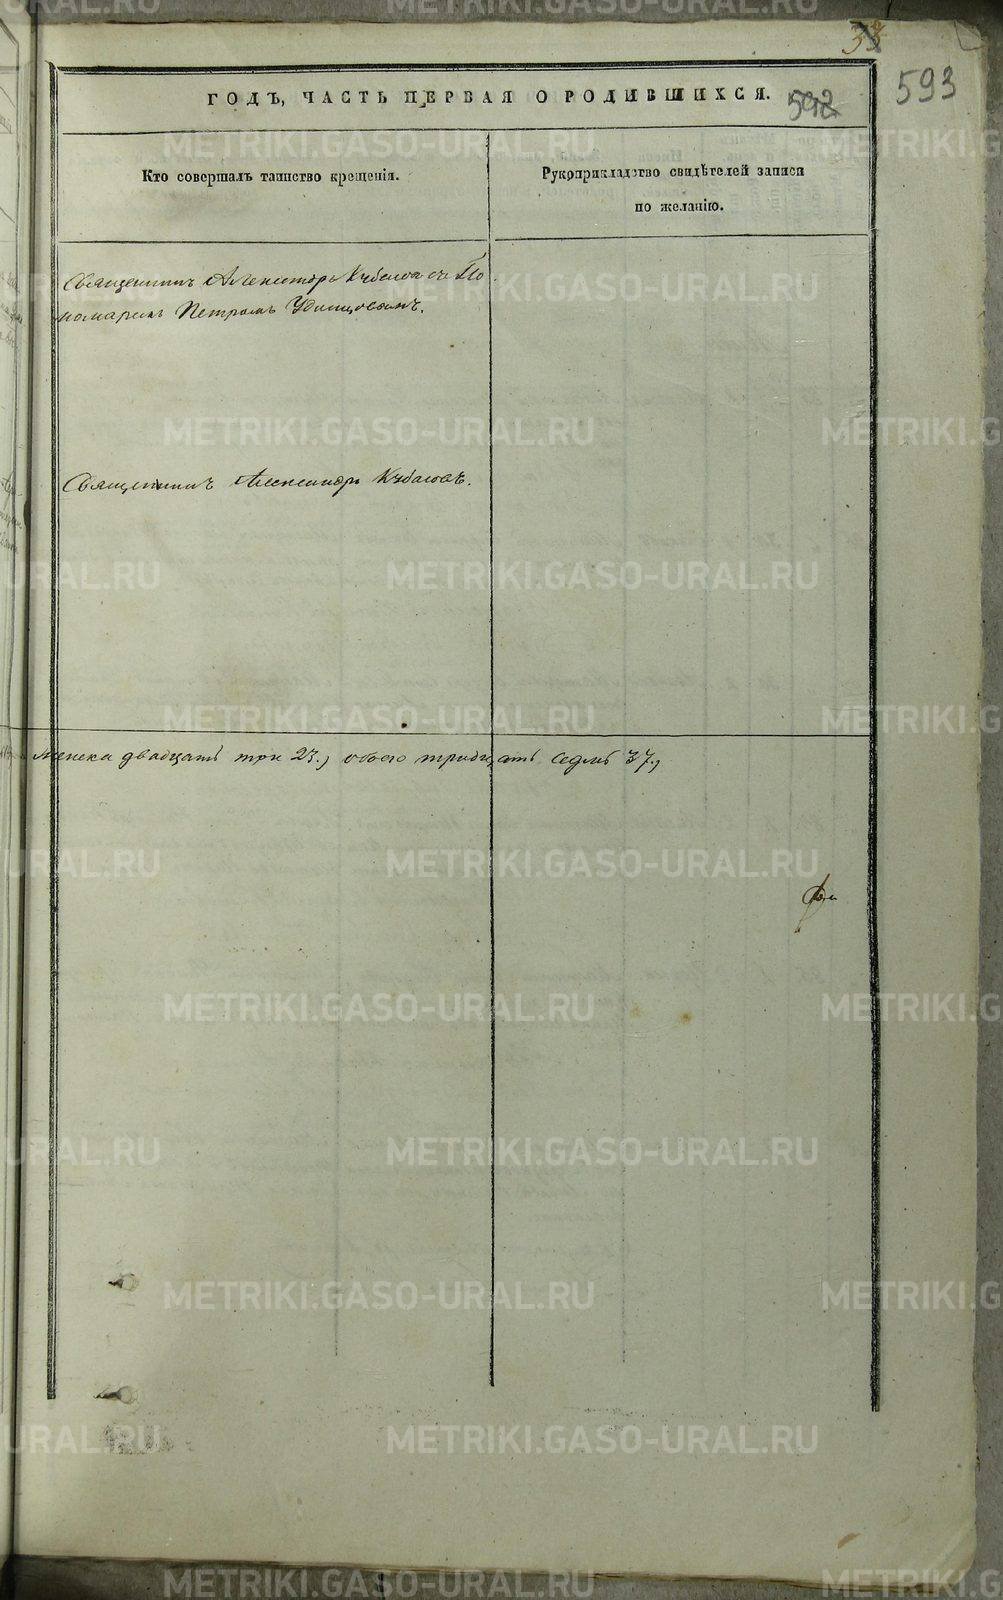 593
ГОДЪ, ЧАСТЬ ПЕРВАЯ О РОДИВШИХСЯ. 592
Кто совершалъ таинство крещенія.
Рукоприкладство свидѣтелей записи
по желанію.
Священникъ Александръ Кубасовъ съ По
номаремъ Петромъ Удинцовымъ.
Священникъ Александръ Кубасовъ.
женска двадцать три 23., обоего тридцать седмь 37.,
METRIKI.GASO-URAL.RU